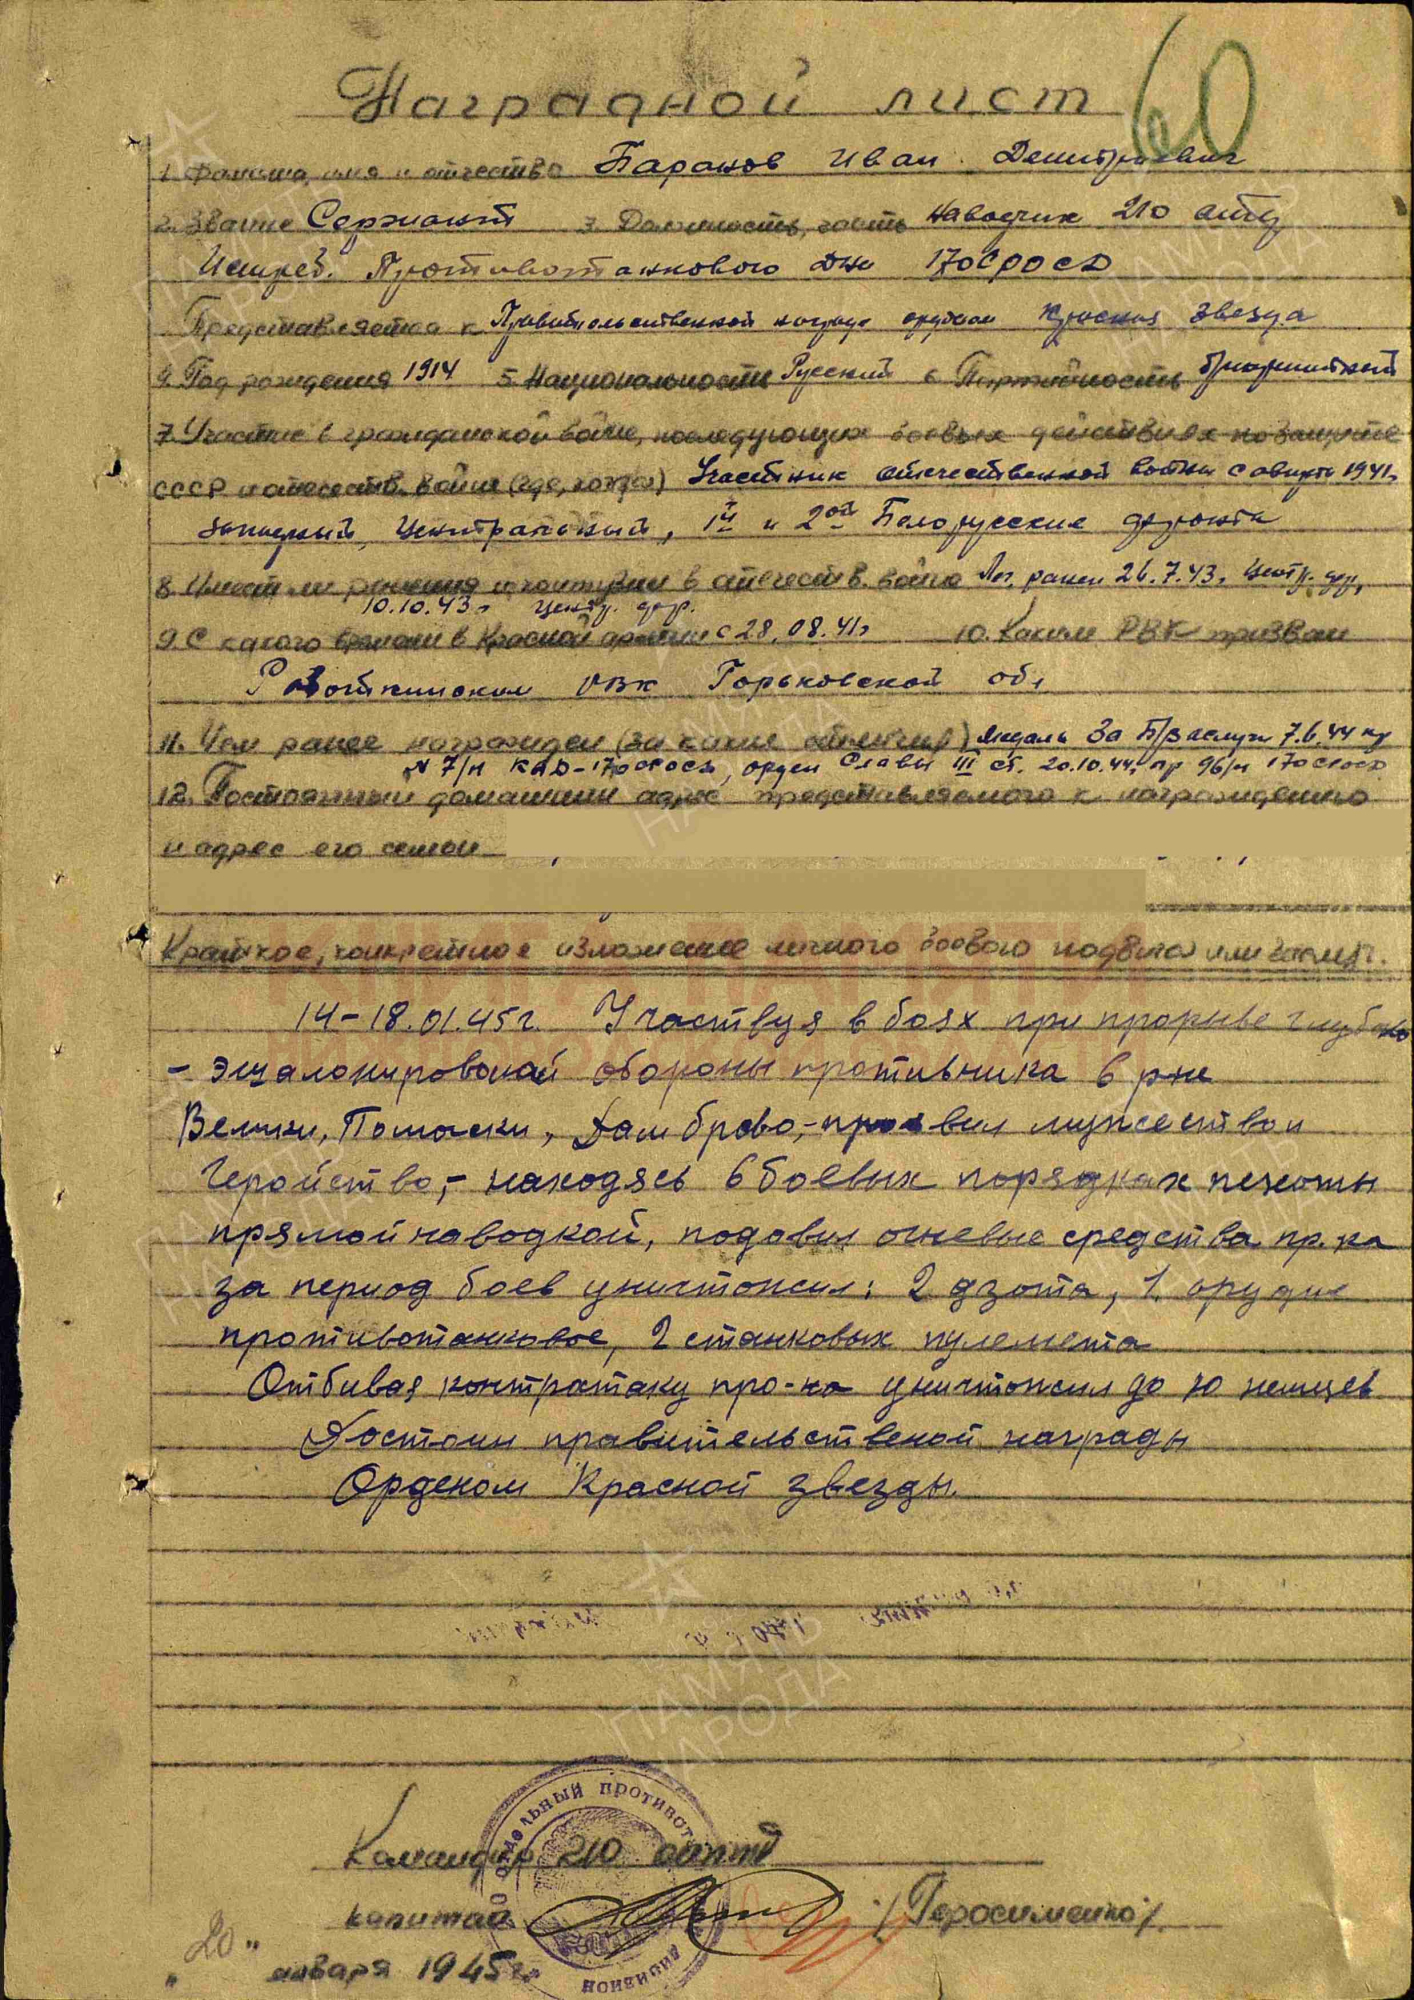 Наградной лист
60
1. Фамилия, имя и отчество Баранов Иван Дмитриевич
2. Звание Сержант 3. Должность, часть наводчик 210 оитд
Истреб. Противотанкового Дн 170СРОСД
Представляется к Правительственной награде орденом Красная звезда
4. Год рождения 1914 5. Национальность Русский 6. Партийность
7. Участие в гражданской войне, последующих боевых действиях по защите
СССР и отечеств. войне (где, когда) Участник отечественной войны с августа 1941г.
Западный, Центральный, 1й и 2ой Белорусские фронта
8. Имеет ли ранения и контузии в отечеств. войне Лег. ранен 26.7.43г. Центр. фр,
10.10.43г. центр. фр.
9. С какого времени в Красной армии с 28.08.41г. 10. Каким РВК призван
Работкинским РВК Горьковской обл
11. Чем ранее награжден (за какие отличия) медаль За Б/заслуги 7.6.44 пр
N 7/н КАД-170СРОСД, орден Славы III ст. 20.10.44г. пр 96/н 170СРОСД
12. Постоянный домашний адрес представляемого к награждению
и адрес его семьи
Краткое, конкретное изложение личного боевого подвига или заслуг.
14-18.01.45г. Участвуя в боях при прорыве глубоко
- эшалонированой обороны противника в р-не
Велики, Помаски, Дамброво,- проявил мужество и
Геройство,- находясь в боевых порядках пехоты
прямой наводкой, подавил огневые средства пр.ка
за период боев уничтожил: 2 дзота, 1. орудие
противотанковое, 2 станковых пулемета
Отбивая контратаку про-ка уничтожил до 10 немцев
Достоин правительственой награды
Орденом Красной звезды.
Командир 210 оиптд
капитан /Геросименко/
„20" января 1945г.
отдельный противот
дивизион
ПАМЯТЬ НАРОДА
КНИГА ПАМЯТИ